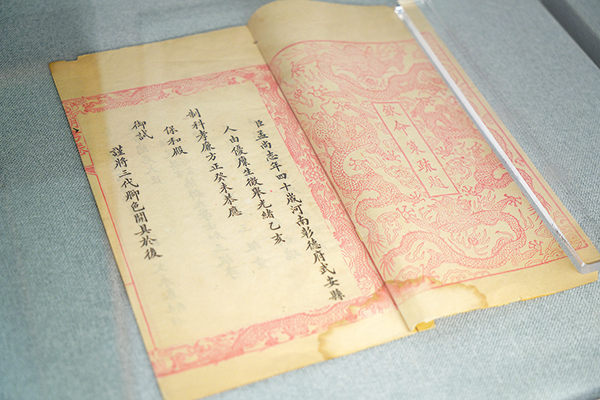 臣孟尚志年四十歲河南彰德府武安縣
人由優廩生徵舉光緒乙亥
制科孝廉方正癸未恭應
保和殿
御試
謹將三代腳色開具於後